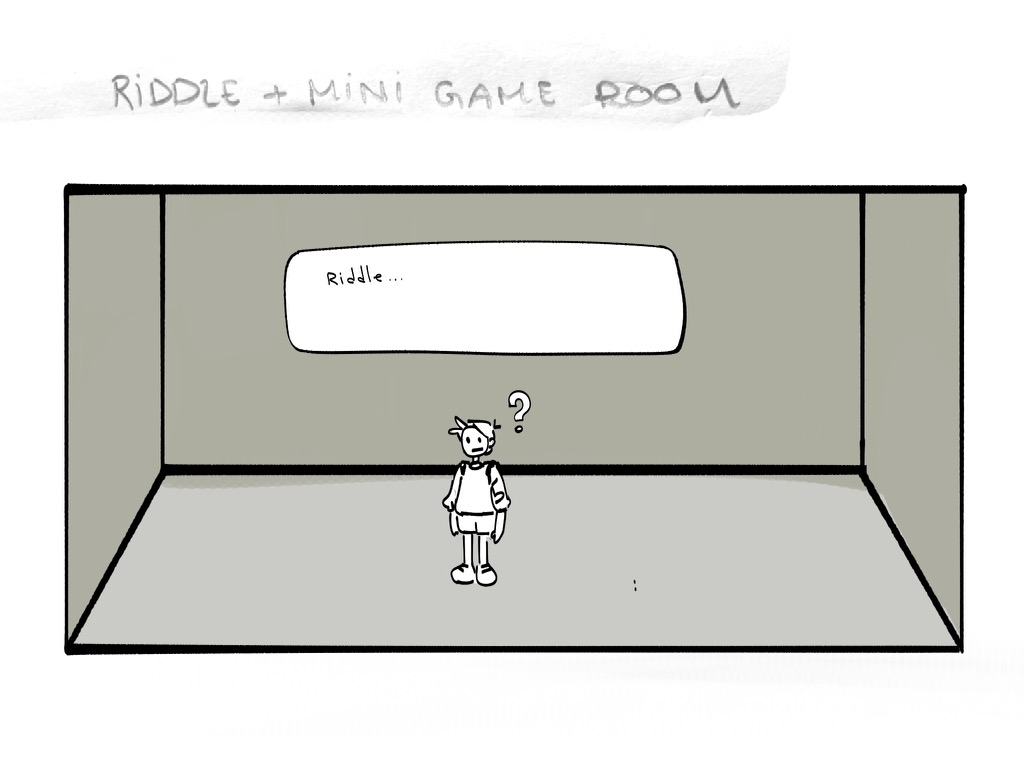 RiDDLE + MiNi GAME ROOM
Riddle...
?